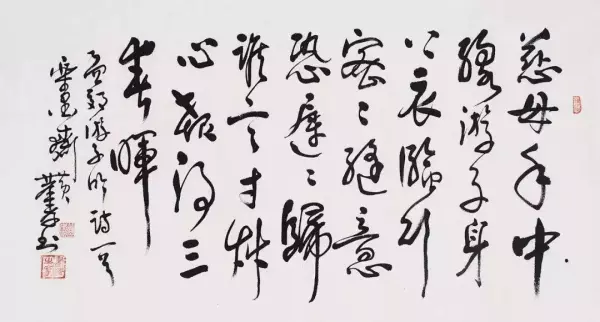 慈母手中
線游子身
上衣臨行
密々縫意
恐遲々歸
誰言寸艸
心報得三
春暉
孟郊游子吟詩一首